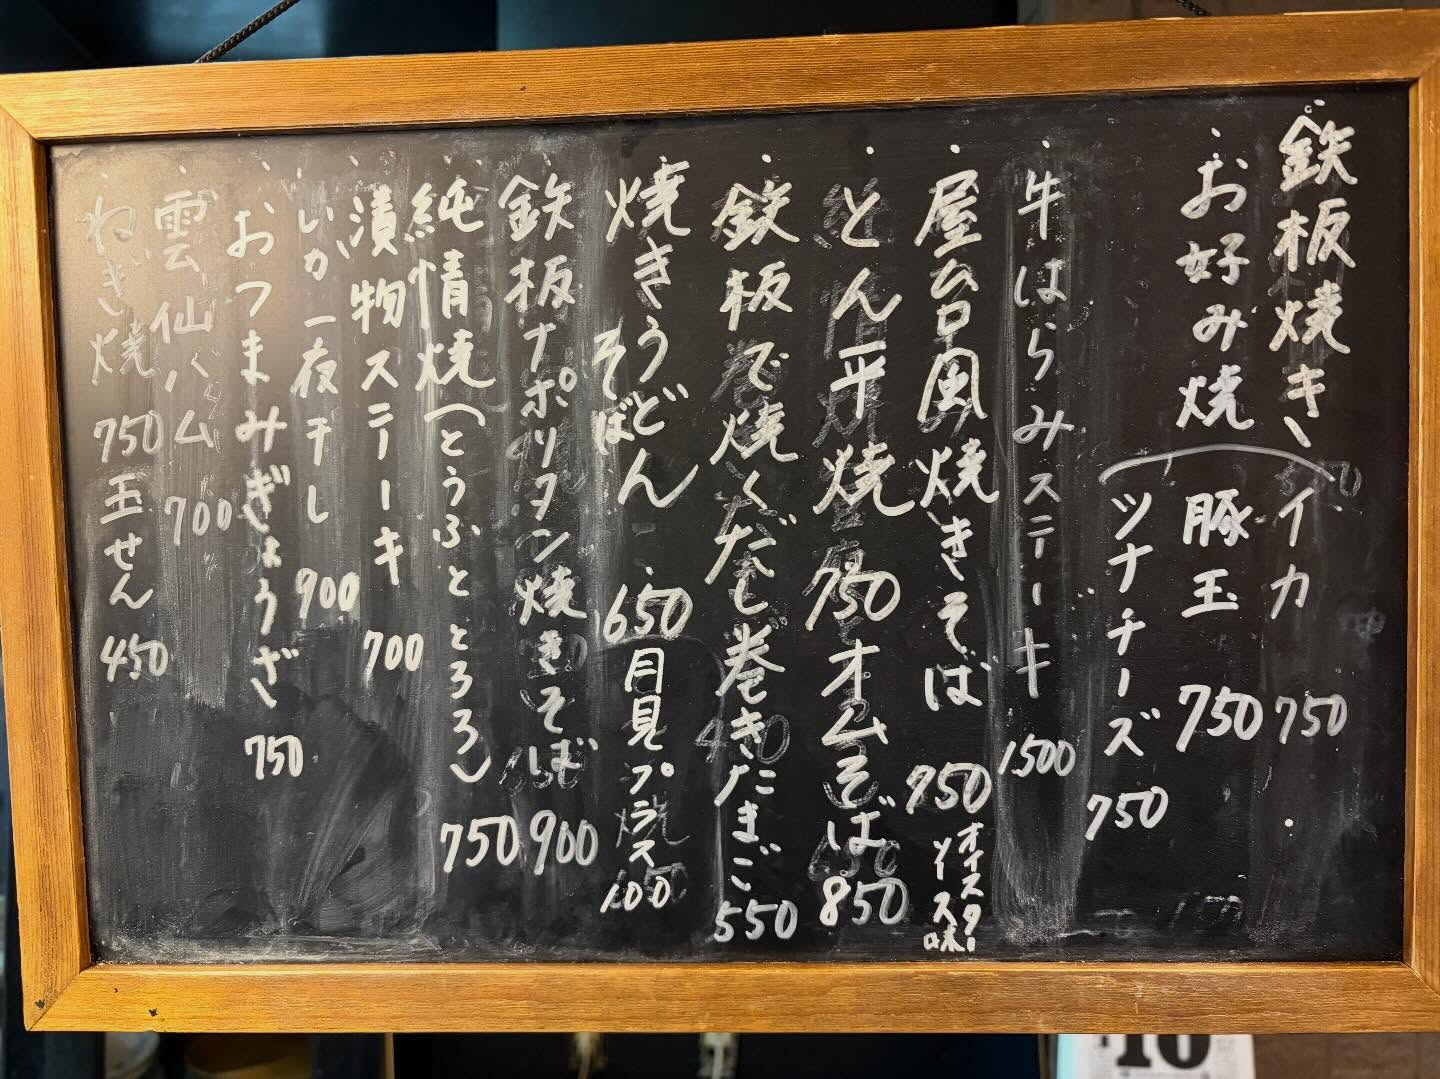 鉄板焼き イカ 750
お好み焼 豚玉 750
ツナチーズ 750
牛はらみステーキ 1500
屋台風焼きそば 750 オイスターソース味
とん平焼 750 オムそば 850
鉄板で焼くだし巻きたまご 550
焼きうどん そば 650 月見プラス 100
鉄板ナポリタン焼きそば 900
純情焼(とうふととろろ) 750
漬物ステーキ 700
いか一夜干し 900
おつまみぎょうざ 750
雲仙ハム 700
ねぎ焼 750 玉せん 450
10